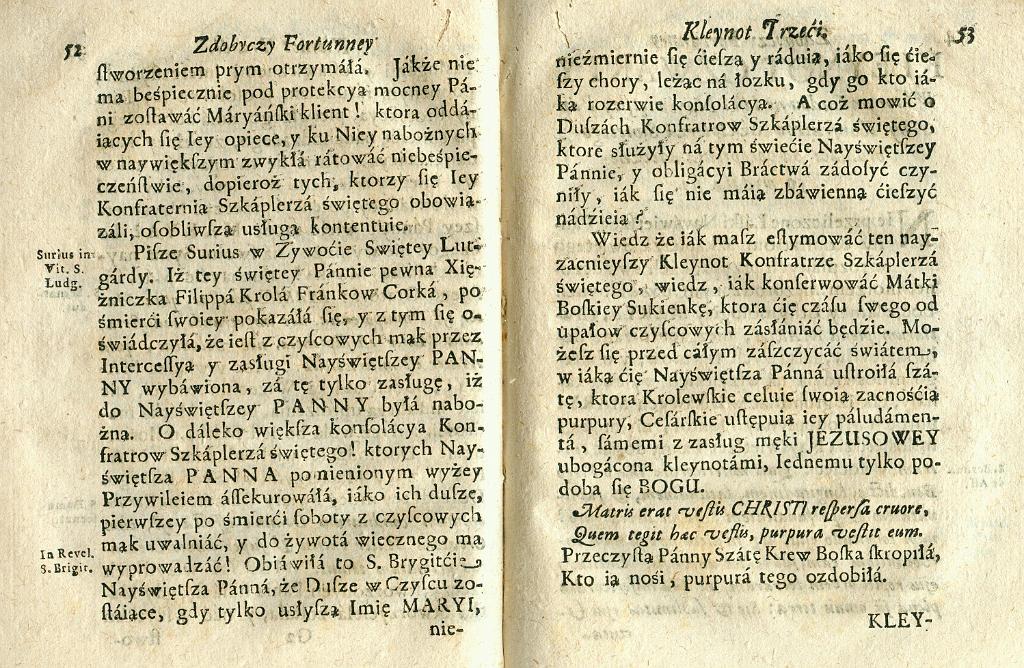 52
Zdobyczy Fortunney
ſtworzeniem prym otrzymáłá. Jákże nie
ma beśpiecznie pod protekcya mocney Pá-
ni zoſtawáć Máryáńſki klient! ktora oddá-
iących się Iey opiece, y ku Niey nabożnych
w naywiększym zwykłá rátowáć niebeśpie-
czeńſtwie, dopieroż tych, ktorzy się Iey
Konfraternia Szkáplerzá świętego obowią-
záli, oſobliwſzą uſługą kontentuie.
Surius in
Vit. S.
Ludg.
Piſze Surius w Zywoćie Swiętey Lut-
gárdy. Iż tey świętey Pánnie pewna Xię-
żniczka Filippá Krolá Fránkow Corká, po
śmierći ſwoiey pokazáłá się, y z tym się o-
świádczyłá, że ieſt z czyſcowych mąk przez
Interceſſyą y zaſługi Nayświętſzey PAN-
NY wybáwiona, zá tę tylko zaſługę, iż
do Nayświętſzey PANNY byłá nabo-
żna. O dáleko większa konſolácya Kon-
fratrow Szkáplerzá świętego! ktorych Nay-
świętſza PANNA ponienionym wyżey
Przywileiem áſſekurowáłá, iáko ich duſze,
pierwſzey po śmierći ſoboty z czyſcowych
In Revel.
S. Brigit.
mąk uwalniáć, y do żywotá wiecznego ma
wyprowadzáć! Obiáwiłá to S. Brygitćie
Nayświętſza Pánná, że Duſze w Czyſcu zo-
ſtáiące, gdy tylko uſłyſzą Imię MARYI,
nie-
Kleynot Trzeći.
53
nieźmiernie się ćieſzą y ráduią, iáko się ćie-
ſzy chory, leżąc ná łozku, gdy go kto iá-
ką rozerwie konſolácyą. A coż mowić o
Duſzách Konfratrow Szkáplerzá świętego,
ktore służyły ná tym świećie Nayświętſzey
Pánnie, y obligácyi Bráctwá zádoſyć czy-
niły, iák się nie máią zbáwienną ćieſzyć
nádzieią?
Wiedz że iák maſz eſtymowáć ten nay-
zacnieyſzy Kleynot Konfratrze Szkáplerzá
świętego, wiedz, iák konſerwowáć Mátki
Boſkiey Sukienkę, ktora ćię czáſu ſwego od
upałow czyſcowych záſłániáć będzie. Mo-
żeſz się przed cáłym zászczycáć świátem,
w iáką ćię Nayświętſza Pánná uſtroiłá ſzá-
tę, ktora Krolewſkie celuie ſwoią zacnośćią
purpury, Ceſárſkie uſtępuią iey páludámen-
tá, ſámemi z zaſług męki JEZUSOWEY
ubogácona kleynotámi, Iednemu tylko po-
doba się BOGU.
Matris erat veſtis CHRISTI reſperſa cruore,
Quem tegit hæc veſtis, purpura veſtit eum.
Przeczyſta Pánny Szátę Krew Boſka ſkropiłá,
Kto ią nośi, purpurá tego ozdobiłá.
KLEY-